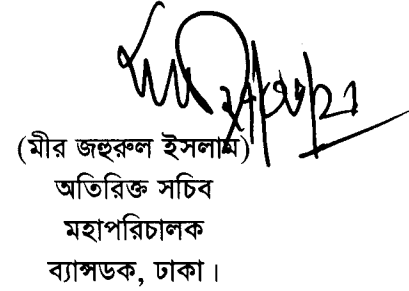 (মীর জহুরুল ইসলাম)
অতিরিক্ত সচিব
মহাপরিচালক
ব্যান্সডক, ঢাকা।